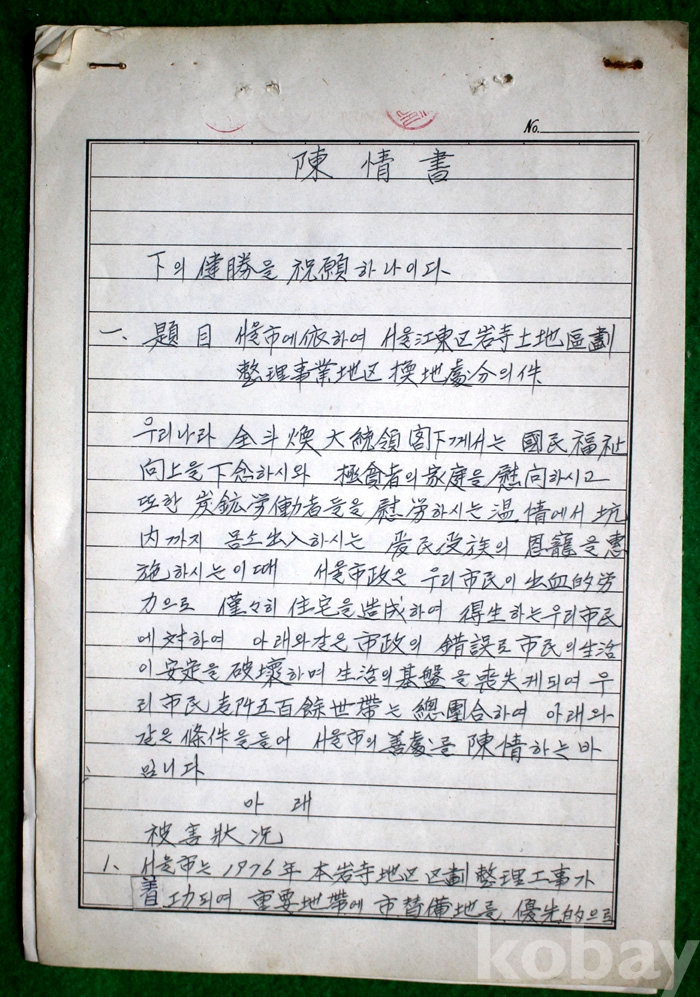 No.
陳情書
下의 健勝을 祝願하나이다
一. 題目 서울市에依하여 서울江東区岩寺土地區劃
整理事業地区 換地處分의件
우리나라 全斗煥大統領閣下께서는 國民福祉
向上을下念하시와 極貧者의家庭을慰问하시고
또한 炭鉱労働者들을慰労하시는温情에서坑
内까지 몸소出入하시는 愛民 族의 恩寵을惠
施하시는이때 서울市政은우리市民이出血的労
力으로 僅々히住宅을造成하여 得生하는우리市民
에対하여 아래와같은市政의 錯誤로市民의生活
이安定을破壞하며 生活의基盤을喪失케되여우
리市民 五百餘世帶는 總團合하여 아래와
같은條件을들어 서울市의善處를陳情하는바
입니다
아래
被害狀况
1. 서울市는1976年本岩寺地区区劃整理工事가
着工되여 重要地帶에市替備地를優先的으로
kobay